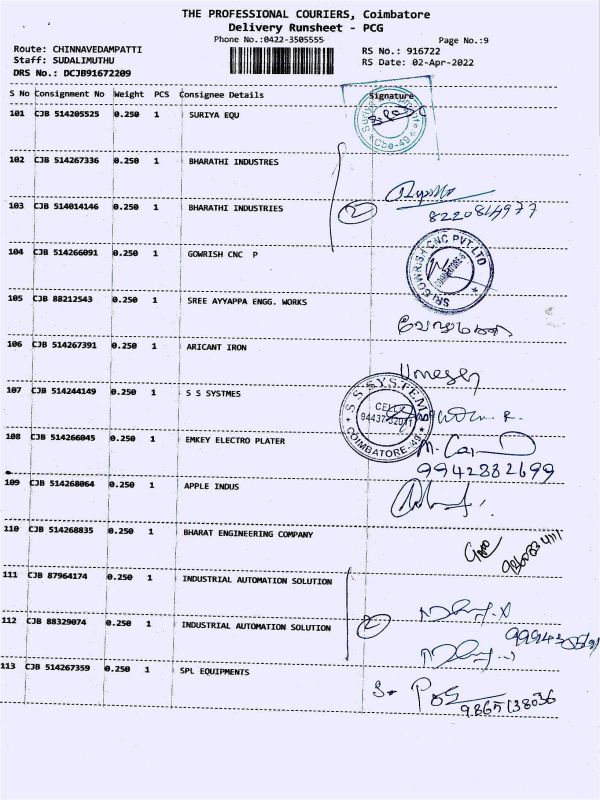 THE PROFESSIONAL COURIERS, Coimbatore
Delivery Runsheet - PCG
Phone No.:0422-3505555
Page No.:9
Route: CHINNAVEDAMPATTI
RS No.: 916722
Staff: SUDALIMUTHU
RS Date: 02-Apr-2022
DRS No.: DCJB91672209
S No Consignment No Weight PCS Consignee Details Signature
101 CJB 514205525 0.250 1 SURIYA EQU
102 CJB 514267336 0.250 1 BHARATHI INDUSTRES
103 CJB 514014146 0.250 1 BHARATHI INDUSTRIES
2
8220814977
104 CJB 514266091 0.250 1 GOWRISH CNC P
SRI GOWRISH CNC PVT LTD
COIMBATORE
105 CJB 88212543 0.250 1 SREE AYYAPPA ENGG. WORKS
106 CJB 514267391 0.250 1 ARICANT IRON
Umesh
107 CJB 514244149 0.250 1 S S SYSTMES
S S SYSTEM
CELL:
COIMBATORE-49
108 CJB 514266045 0.250 1 EMKEY ELECTRO PLATER
9942882699
109 CJB 514268064 0.250 1 APPLE INDUS
110 CJB 514268835 0.250 1 BHARAT ENGINEERING COMPANY
111 CJB 87964174 0.250 1 INDUSTRIAL AUTOMATION SOLUTION
112 CJB 88329074 0.250 1 INDUSTRIAL AUTOMATION SOLUTION
2
113 CJB 514267359 0.250 1 SPL EQUIPMENTS
9865138036